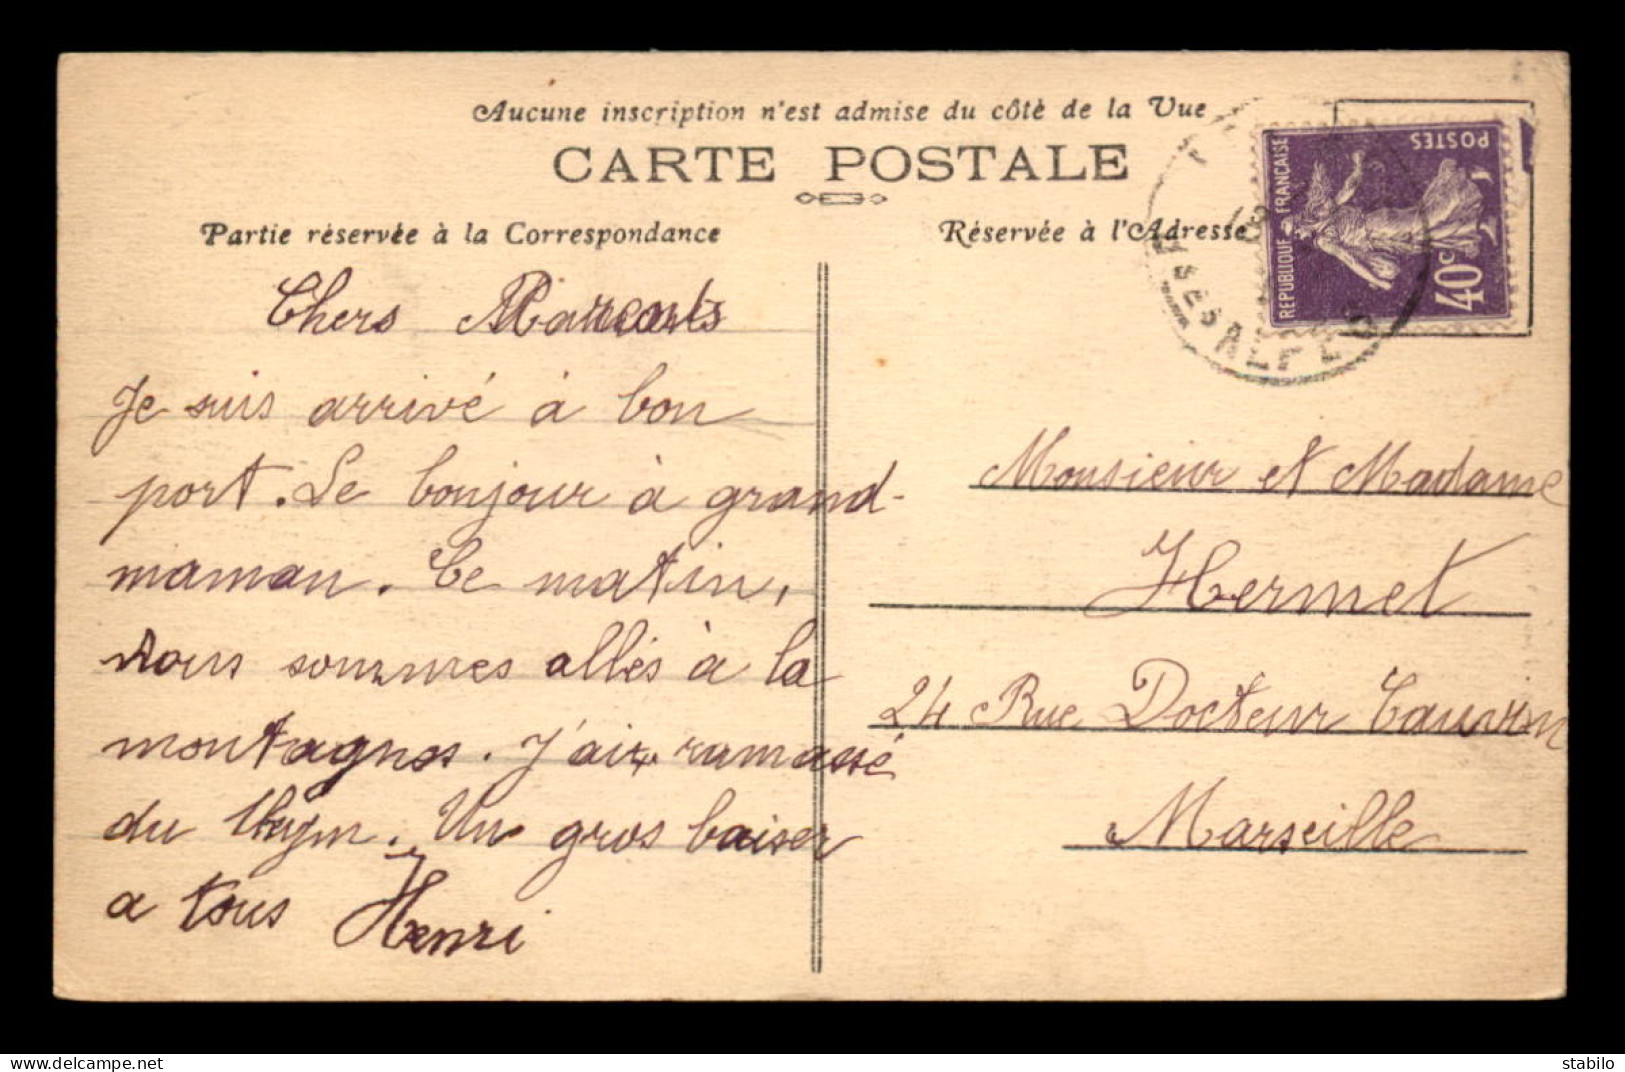 Aucune inscription n'est admise du côté de la Vue
CARTE POSTALE
Partie réservée à la Correspondance
Chers
Je suis arrivé à bon
port. Le bonjour à grand-
maman. Ce matin,
nous sommes allés à la
montagnes. J'ai ramassé
du thym. Un gros baiser
a tous Henri
Réservée à l'Adresse
REPUBLIQUE FRANÇAISE
POSTES
40c
Bses ALPES
Monsieur et Madame
Hermet
24 Rue Docteur Cauvin
Marseille
www.delcampe.net
stabilo